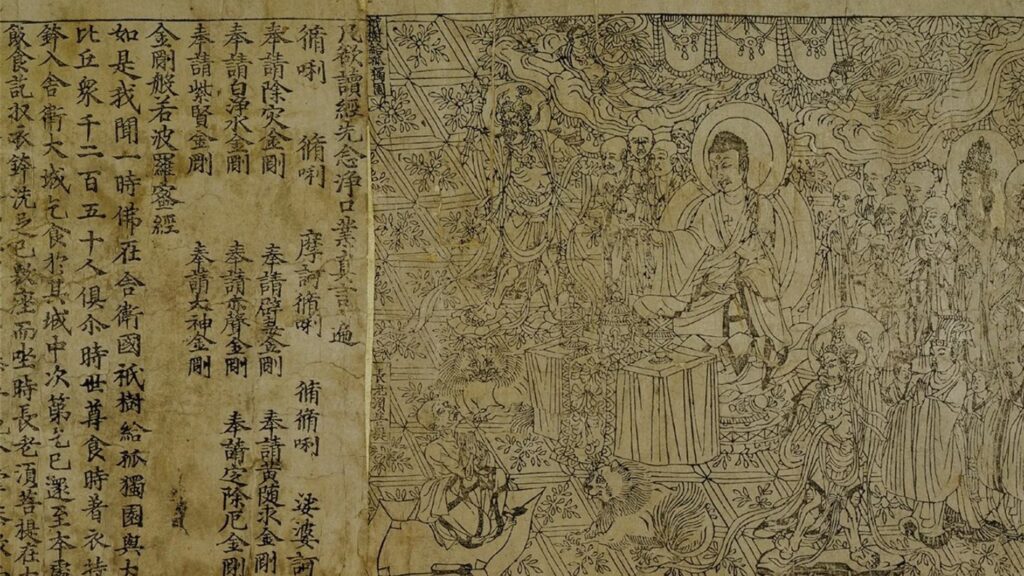 祇樹給孤獨園
凡欲讀經先念淨口業真言遍
脩唎 脩唎 摩訶脩唎 脩脩唎 娑婆訶
奉請除灾金剛 奉請辟毒金剛 奉請黃随求金剛
奉請白淨水金剛 奉請赤聲金剛 奉請定除厄金剛
奉請紫賢金剛 奉請大神金剛
金剛般若波羅蜜經
如是我聞一時佛在舍衛國祇樹給孤獨園與大
比丘衆千二百五十人俱尒時世尊食時著衣持
鉢入舍衛大城乞食於其城中次第乞已還至本處
飯食訖収衣鉢洗足已敷座而坐時長老須菩提在大